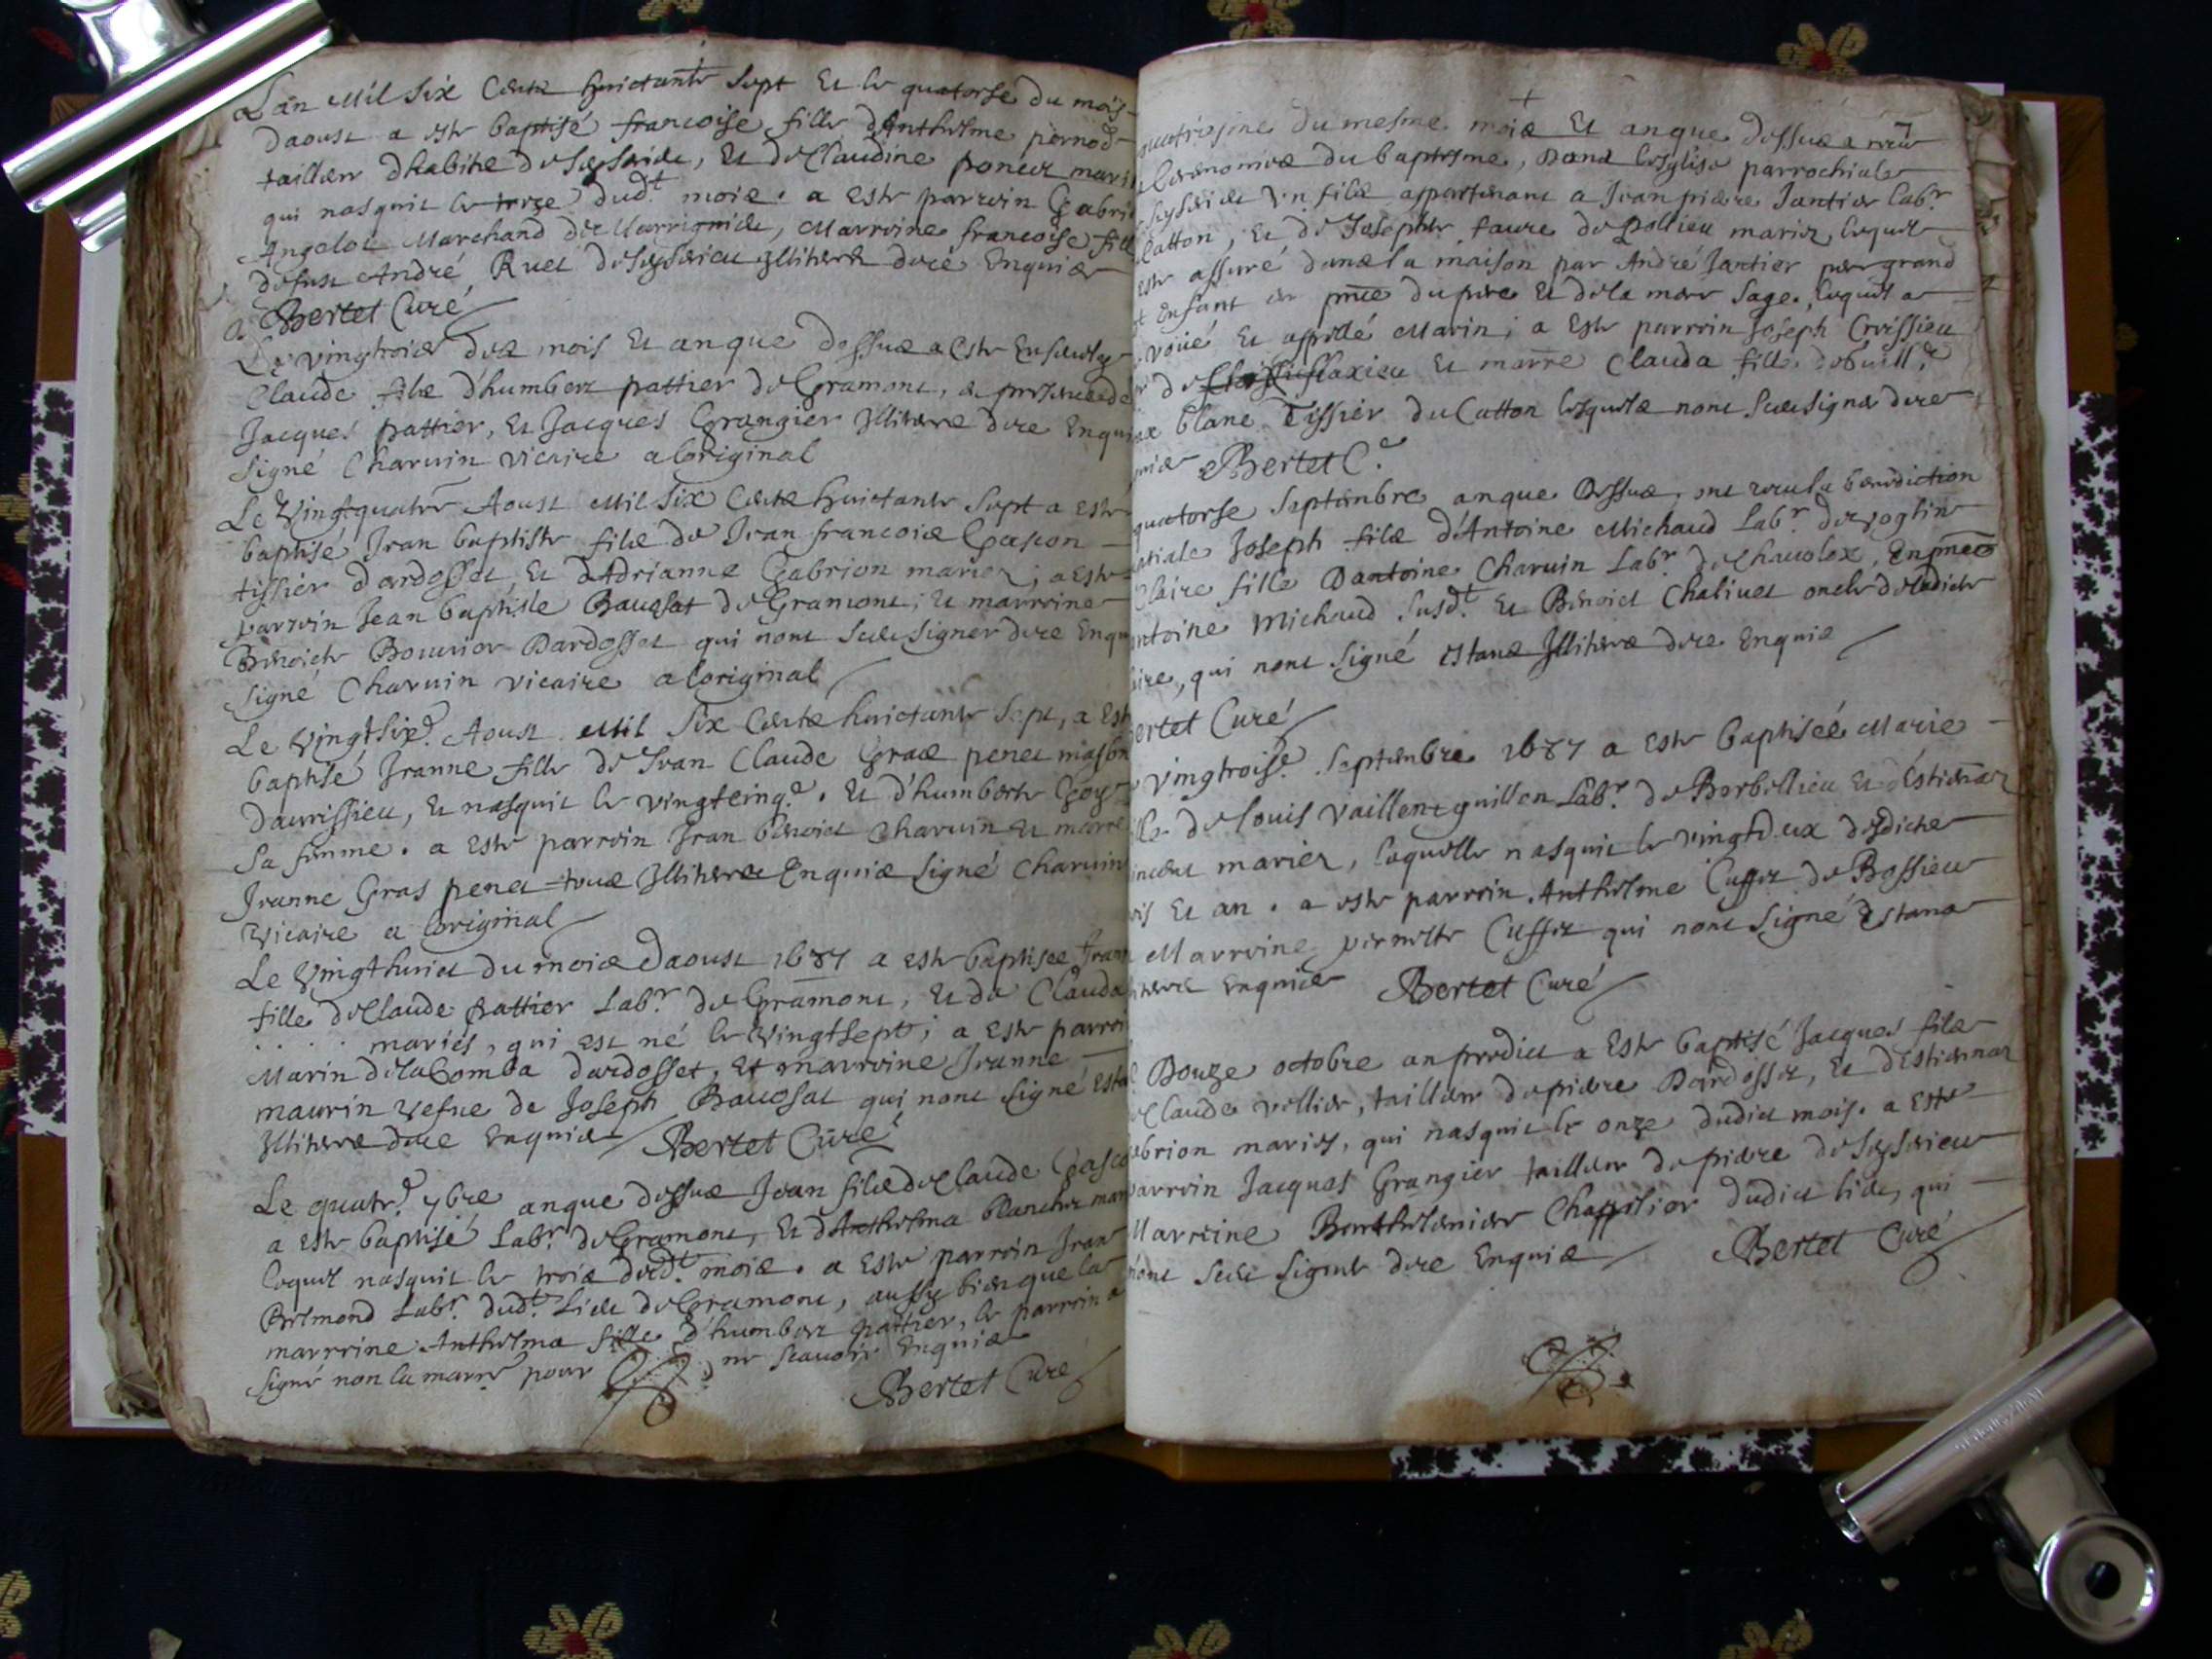 Lan Mil Six Cents huictante Sept Et le quatorse du mois
daoust a este baptisé francoise fille d'Anthelme pernod
tailleur dhabits de Seyssieu, Et de Claudine poncet mari
qui nasquit le treze dud.t mois. a este parroin Gabri
Angelou Marchand de Marrignieu, Marroine francoise fill
defust André Ruet de Seyssieu Illiteres de ce Enquis
Bertet Curé
Le vingtrois des mois Et anque dessus a Este Ensevely
Claude fils d'humbert pattier de Gramont, es presences de
Jacques pattier, Et Jacques Grangier Illiteres de ce Enqui
Signé Charuin vicaire a loriginal
Le Vingtquatre Aoust Mil Six Cents huictante Sept a Este
baptisé Jean baptiste fils de Jean francois Gascon
tissier dardosset, Et d'Adrianne Gabrion mariez; a Este
parroin Jean baptiste Baucsat de Gramont; Et marroine
Benoiste Bouvier Dardosset qui nont sceu signer de ce Enqu
signé Charuin vicaire a loriginal
Le Vingtsix.e Aoust Mil Six Cents huictante Sept, a Est
baptisé Jeanne fille de Jean Claude Gras penet masson
daurissieu, Et nasquit le vingtcinq.e. Et d'humberte Goy
Sa femme. a Este parroin Jean benoict Charuin Et marre
Jeanne Gras penet tous Illiteres Enquis Signé Charuin
Vicaire a loriginal
Le Vingthuict du mois Daoust 1687 a este baptisee Jean
fille de Claude pattier Lab.r de Gramont, Et da Clauda
. . . . mariés, qui est né le Vingtsept; a Este parroi
Marin de la Comba dardosset, Et marroine Jeanne
maurin vefue de Joseph Baucsat qui nont signé Esta
Illiteres de ce Enquis Bertet Curé
Le quatr.e 7bre anque dessus Jean fils de Claude Gasco
a Este baptisé Lab.r de Gramont, Et d'Anthelma blanchet mar
lequel nasquit le trois dud.t mois. a Este parroin Jean
Bermond Lab.r dud.t Lieu de Gramont, aussy bien que la
marroine Anthelma fille d'humbert pattier, le parroin a
signé non la marre pour ne scauoir Enquis
Bertet Curé
quatriesme du mesme mois Et anque dessus a receu
Ceremonies du baptesme, Dans lesglise parrochiale
Seyssieu Un fils appartenant a Jean pierre Jantier lab.r
Catton, Et de Josephte faure de Pollieu mariez, lequel
este assuré dans la maison par André Jantier per grand
Enfant en pnce du pere Et de la mere sage, lequel a
voué Et appellé Marin; a Este parroin Joseph Croissieu
de flaxieu Et marre Clauda fille de
blanc Tissier du Catton lesquels nont sceu signer de ce
Bertet C.é
quatorse Septembre anque dessus, ont receu la benediction
Joseph fils d'Antoine Michaud Lab.r de voglin
Claire fille Dantoine Charuin Lab.r de Chauolex, En pnces
ntoine Michaud susd.t Et Benoict Chaliuet oncle deladicte
aire, qui nont signé Estans Illiteres de ce Enquis
Bertet Curé
Vingtrois.e Septembre 1687 a este baptiseé Marie
de louis Vaillent guillon Lab.r de Borbellieu Et d'Estienar
mariez, laquelle nasquit le vingtdeux desdicts
ois Et an. a este parroin Anthelme Cuffet de Bossieu
Marroine pernette Cuffet qui nont signé Estans
Enquis Bertet Curé
Douze octobre an predict a Este baptisé Jacques fils
Claude vellier, tailleur de piere Dardosset, Et dEstienar
abrion mariés, qui nasquit le onze dudict mois. a Este
parroin Jacques Grangier tailleur de piere de Seyssieu
Marroine Berthelemiere Chappelier dudict lieu, qui
nont sceu signer de ce Enquis Bertet Curé